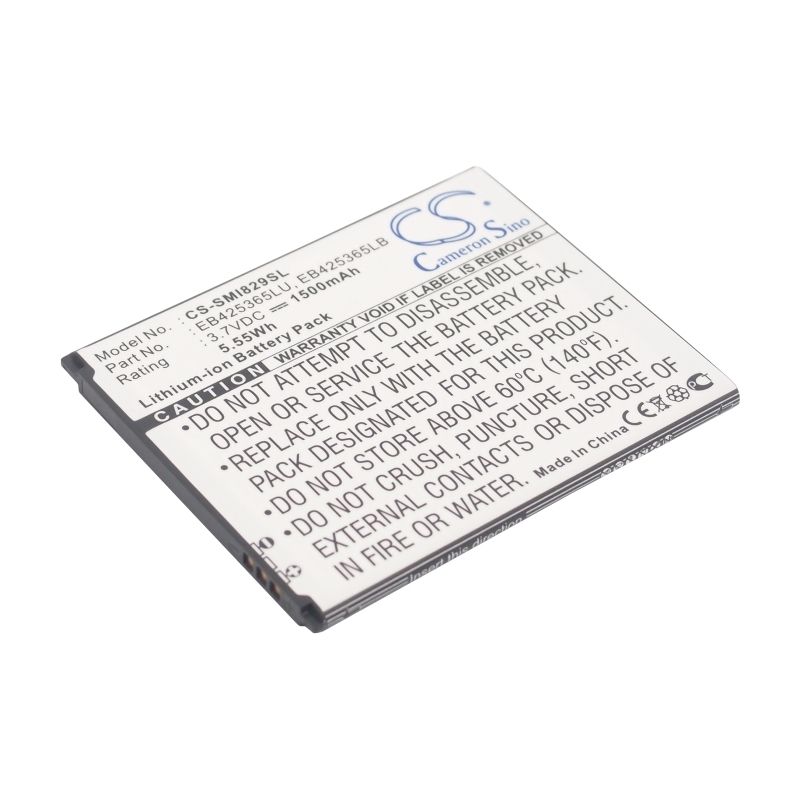 CS
Cameron Sino
Model No. : CS-SMI829SL
Part No. : EB425365LU, EB425365LB
Rating : 3.7VDC 1500mAh
5.55Wh
Lithium-ion Battery Pack
CAUTION WARRANTY VOID IF COVER REMOVED.
•DO NOT ATTEMPT TO DISASSEMBLE,
OPEN OR SERVICE THE BATTERY PACK.
•REPLACE ONLY WITH THE BATTERY
PACK DESIGNATED FOR.
•DO NOT STORE ABOVE 60°C (140°F)
•DO NOT CRUSH, PUNCTURE, SHORTEN
EXTERNAL CONTACTS OR DISPOSE OF
IN FIRE OR WATER.
Made in China
CE
PCT
Insert this direction